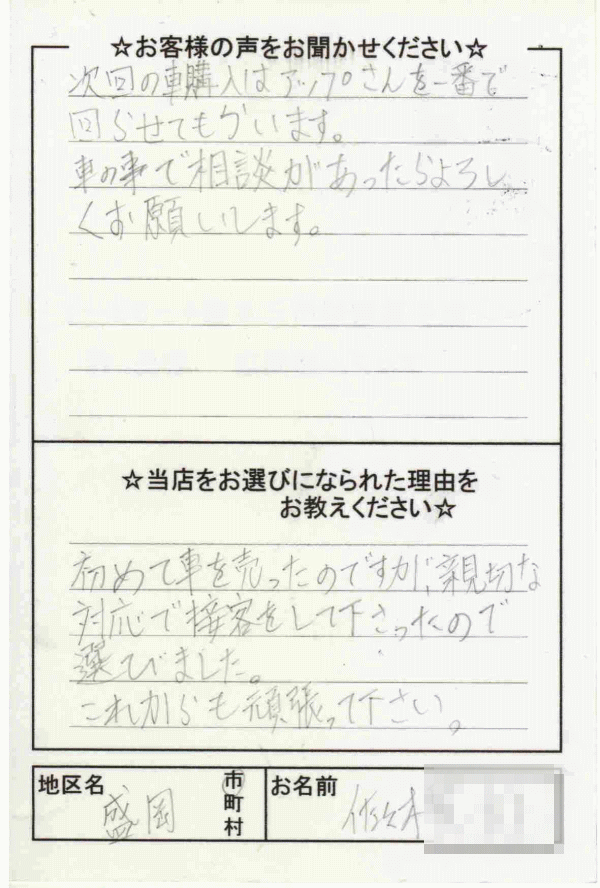 ☆お客様の声をお聞かせください☆
次回の車購入はアップさんを一番で
回らせてもらいます。
車の事で相談があったらよろし
くお願いします。
☆当店をお選びになられた理由を
お教えください☆
初めて車を売ったのですが、親切な
対応で接客をして下さったので
選びました。
これからも頑張って下さい。
地区名 盛岡 市町村 お名前 佐々木